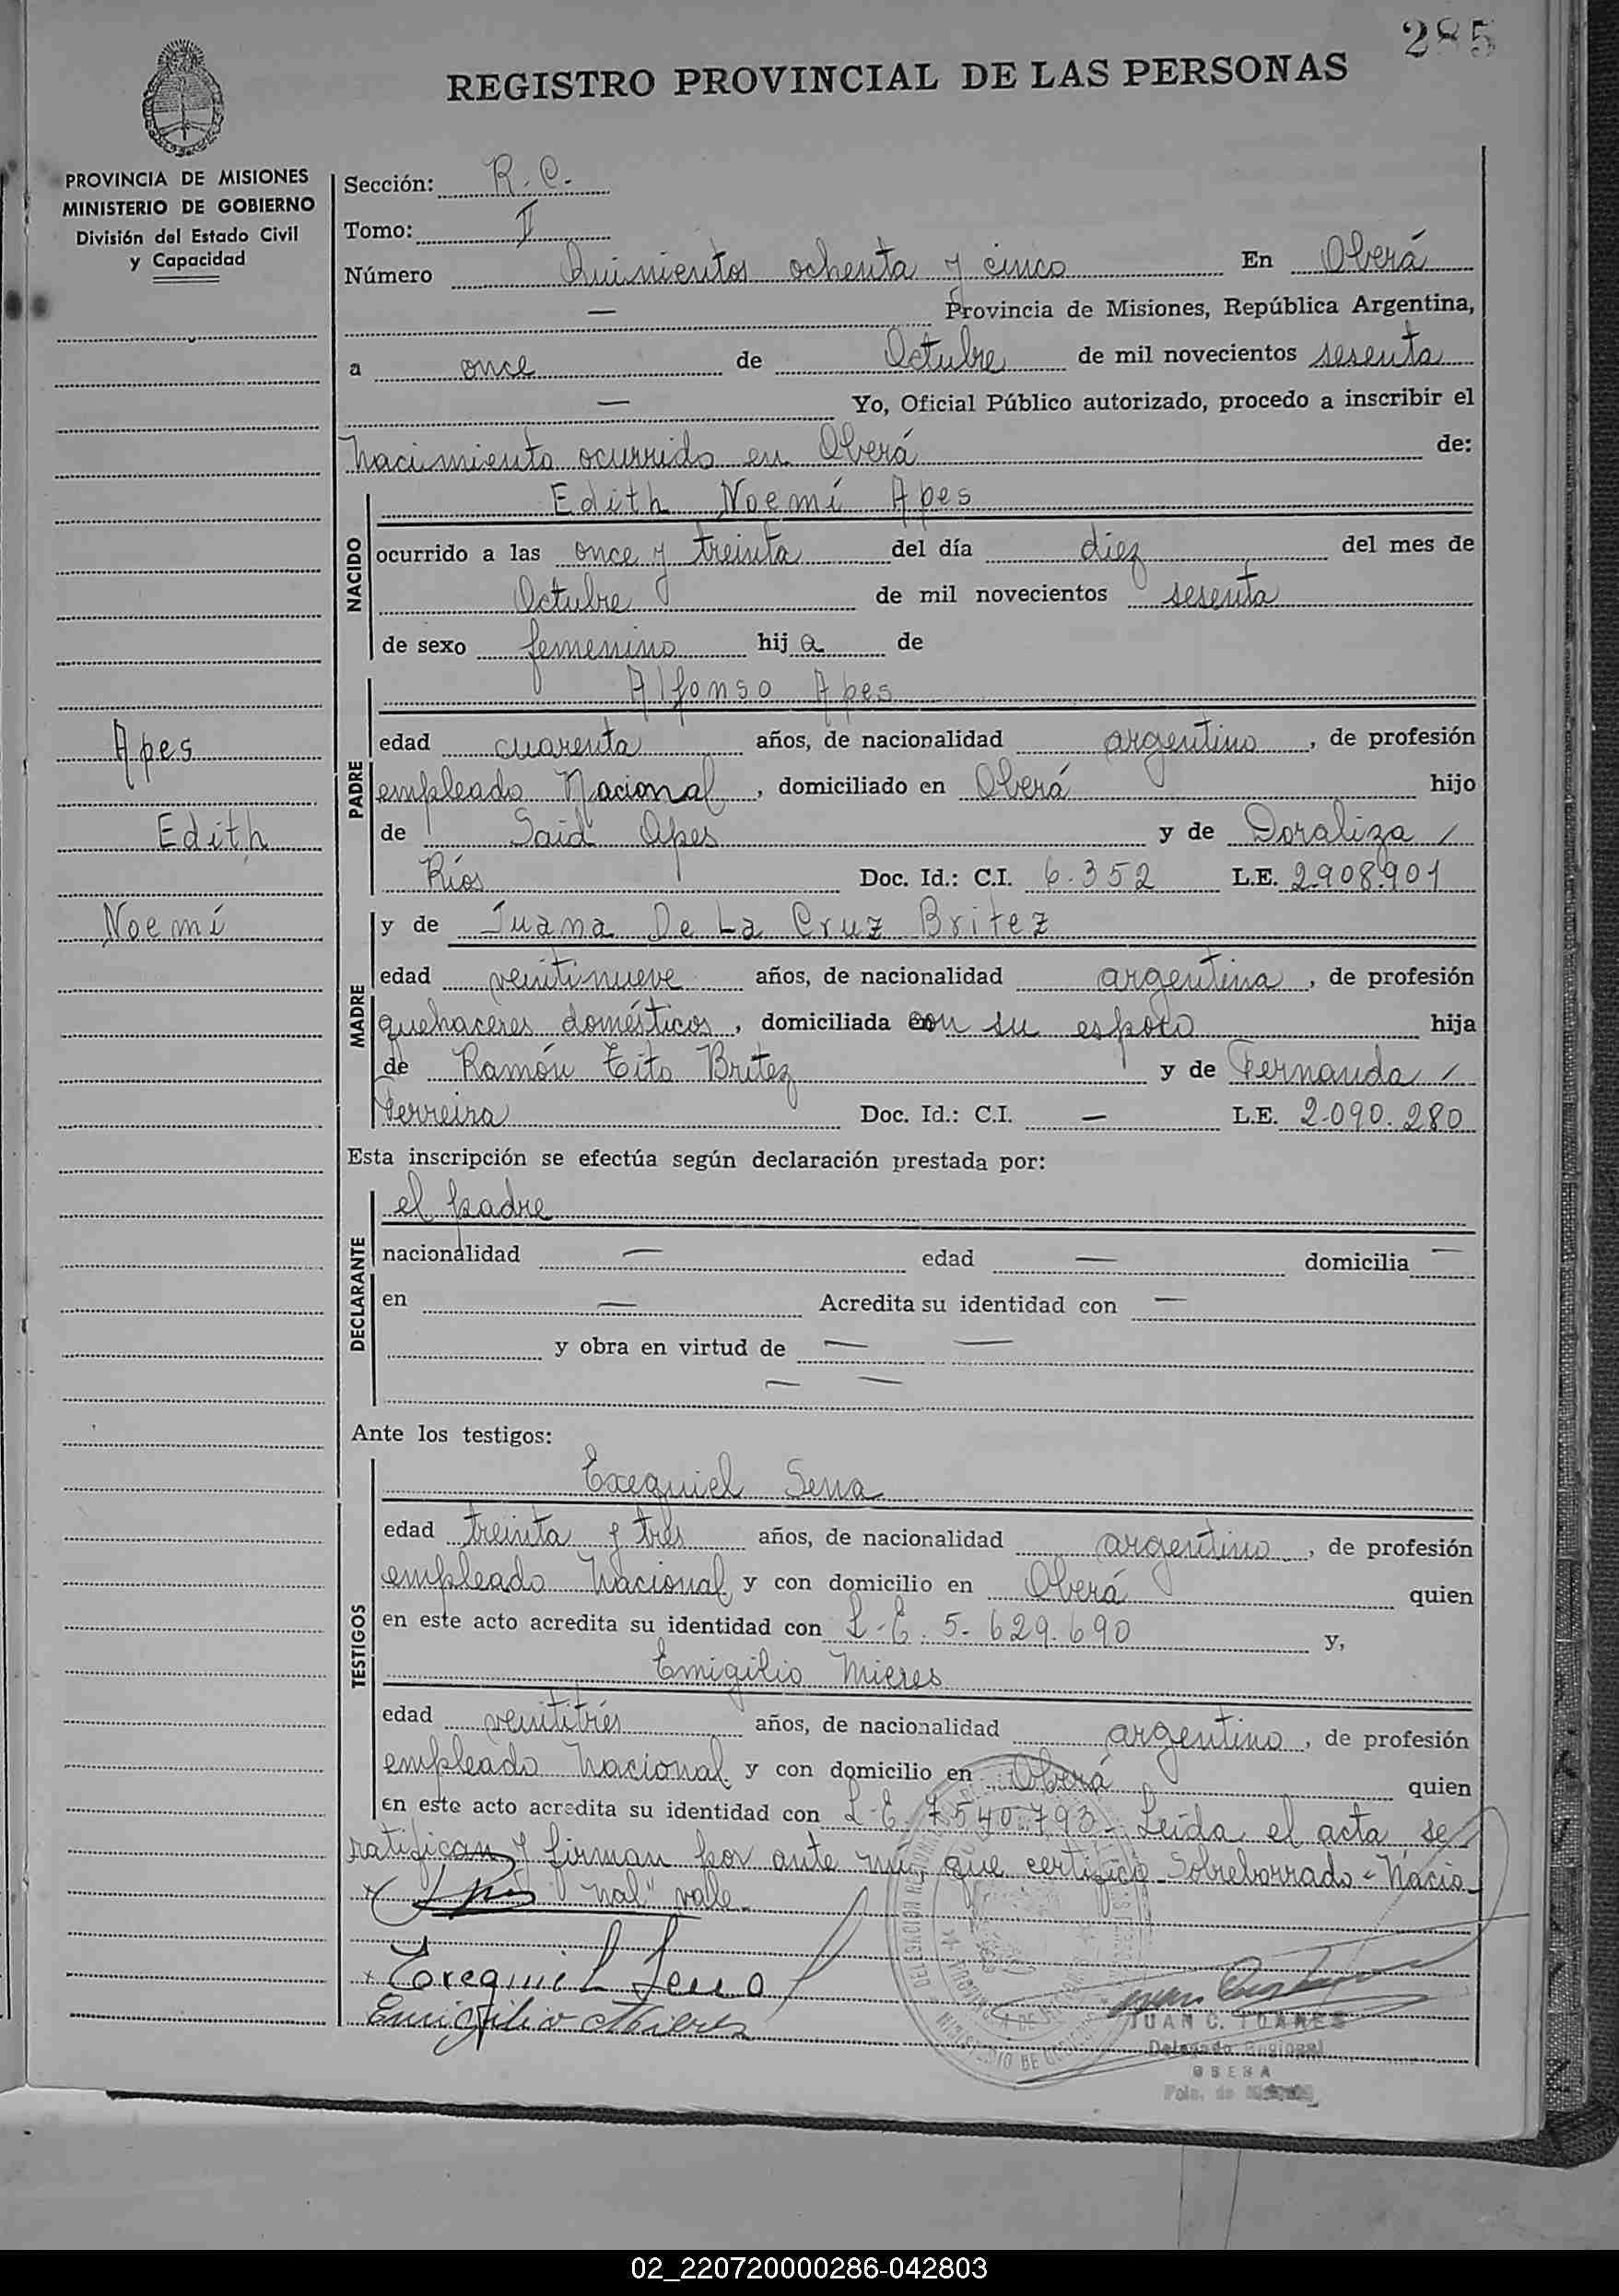 285
REGISTRO PROVINCIAL DE LAS PERSONAS
PROVINCIA DE MISIONES
MINISTERIO DE GOBIERNO
División del Estado Civil
y Capacidad
Sección: R. C.
Tomo: II
Número Quinientos ochenta y cinco En Oberá
— Provincia de Misiones, República Argentina,
a once de Octubre de mil novecientos sesenta
— Yo, Oficial Público autorizado, procedo a inscribir el
nacimiento ocurrido en Oberá de:
NACIDO
Edith Noemí Apes
ocurrido a las once y treinta del día diez del mes de
Octubre de mil novecientos sesenta
de sexo femenino hij a de
PADRE
Alfonso Apes
Apes
Edith
Noemí
edad cuarenta años, de nacionalidad argentino, de profesión
empleado Nacional, domiciliado en Oberá hijo
de Said Apes y de Doraliza /
Ríos Doc. Id.: C.I. 6.352 L.E. 2.908.901
MADRE
y de Juana De La Cruz Britez
edad veintinueve años, de nacionalidad argentina, de profesión
quehaceres domésticos, domiciliada con su esposo hija
de Ramón Tito Britez y de Fernanda /
Ferreira Doc. Id.: C.I. — L.E. 2.090.280
Esta inscripción se efectúa según declaración prestada por:
DECLARANTE
el padre
nacionalidad — edad — domicilia —
en — Acredita su identidad con —
y obra en virtud de — —
— —
Ante los testigos:
TESTIGOS
Exequiel Sena
edad treinta y tres años, de nacionalidad argentino, de profesión
empleado Nacional y con domicilio en Oberá quien
en este acto acredita su identidad con L.E. 5.629.690 y,
Emigilio Mieres
edad veintitrés años, de nacionalidad argentino, de profesión
empleado Nacional y con domicilio en Oberá quien
en este acto acredita su identidad con L.E. 7540.793. Leída el acta se
ratifican y firman por ante mi, que certifico. Sobreborrado - "Nacio-
nal" vale.-
Exequiel Sena
Emigilio Mieres
JUAN C. TOARES
Delegado Regional
OBERA
Pcia. de Misiones
02_220720000286-042803